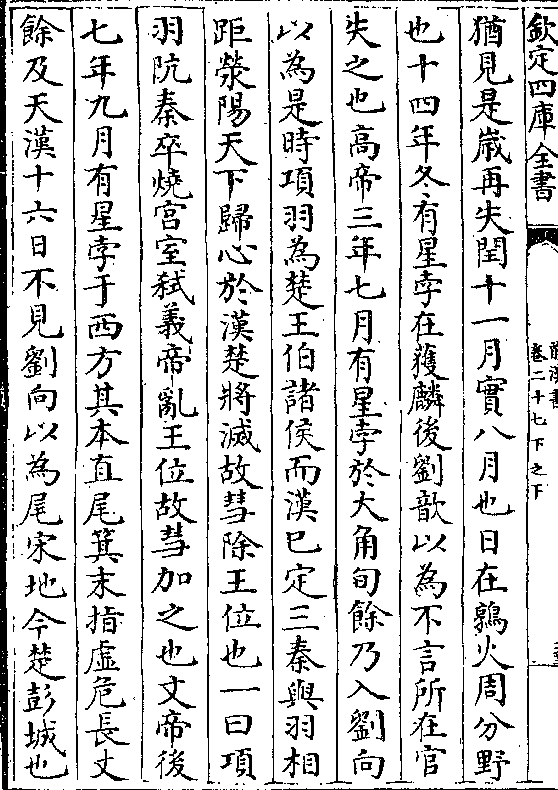 欽定四庫全書
前漢書
卷二十七下之下
猶見是嵗再失閏十一月實八月也日在鶉火周分野
也十四年冬有星孛在獲麟後劉歆以為不言所在官
失之也高帝三年七月有星孛於大角旬餘乃入劉向
以為是時項羽為楚王伯諸侯而漢已定三秦與羽相
距滎陽天下歸心於漢楚將滅故彗除王位也一曰項
羽阬秦卒燒宫室弑義帝亂王位故彗加之也文帝後
七年九月有星孛于西方其本直尾箕末指虛危長丈
餘及天漢十六日不見劉向以為尾宋地今楚彭城也